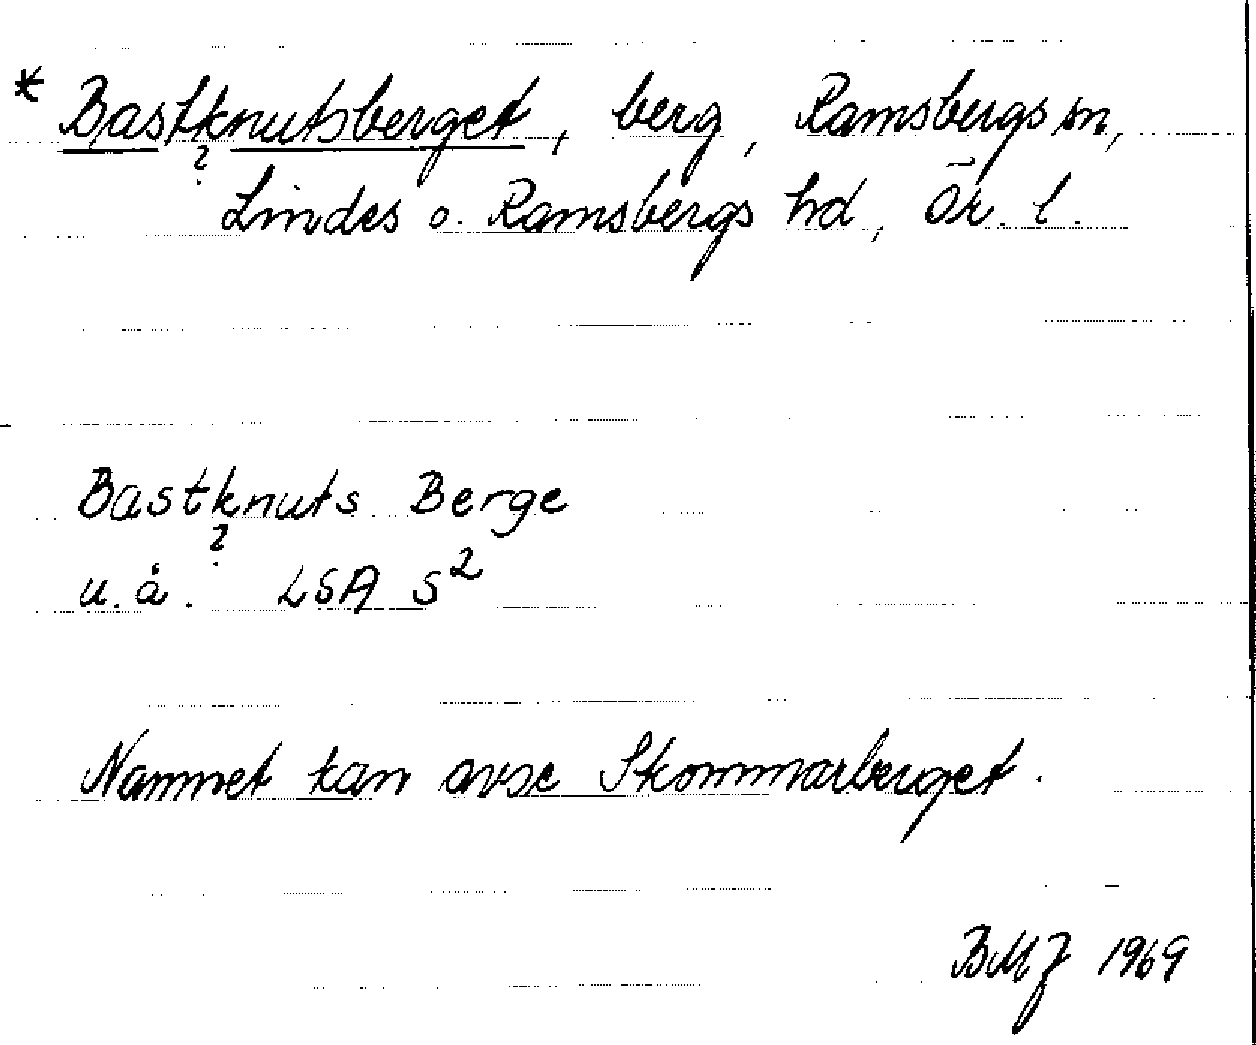 * Bastknutsberget, berg, Ramsbergs sn,
?
Lindes o. Ramsbergs hd, Ör. l.
Bastknuts Berge
?
u.å. LSA S²
Namnet kan avse Skommarberget.
BMJ 1969